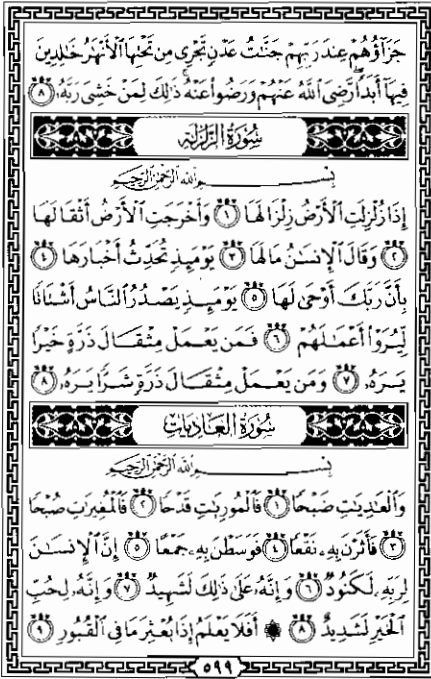 جَزَآؤُهُمْ عِندَ رَبِّهِمْ جَنَّٰتُ عَدْنٍ تَجْرِى مِن تَحْتِهَا ٱلْأَنْهَٰرُ خَٰلِدِينَ
فِيهَآ أَبَدًا ۖ رَّضِىَ ٱللَّهُ عَنْهُمْ وَرَضُوا۟ عَنْهُ ۚ ذَٰلِكَ لِمَنْ خَشِىَ رَبَّهُۥ ٨
سُورَةُ الزَّلْزَلَةِ
بِسْمِ ٱللَّهِ ٱلرَّحْمَٰنِ ٱلرَّحِيمِ
إِذَا زُلْزِلَتِ ٱلْأَرْضُ زِلْزَالَهَا ١ وَأَخْرَجَتِ ٱلْأَرْضُ أَثْقَالَهَا
٢ وَقَالَ ٱلْإِنسَٰنُ مَا لَهَا ٣ يَوْمَئِذٍ تُحَدِّثُ أَخْبَارَهَا ٤
بِأَنَّ رَبَّكَ أَوْحَىٰ لَهَا ٥ يَوْمَئِذٍ يَصْدُرُ ٱلنَّاسُ أَشْتَاتًا
لِّيُرَوْا۟ أَعْمَٰلَهُمْ ٦ فَمَن يَعْمَلْ مِثْقَالَ ذَرَّةٍ خَيْرًا
يَرَهُۥ ٧ وَمَن يَعْمَلْ مِثْقَالَ ذَرَّةٍ شَرًّا يَرَهُۥ ٨
سُورَةُ العَادِيَاتِ
بِسْمِ ٱللَّهِ ٱلرَّحْمَٰنِ ٱلرَّحِيمِ
وَٱلْعَٰدِيَٰتِ ضَبْحًا ١ فَٱلْمُورِيَٰتِ قَدْحًا ٢ فَٱلْمُغِيرَٰتِ صُبْحًا
٣ فَأَثَرْنَ بِهِۦ نَقْعًا ٤ فَوَسَطْنَ بِهِۦ جَمْعًا ٥ إِنَّ ٱلْإِنسَٰنَ
لِرَبِّهِۦ لَكَنُودٌ ٦ وَإِنَّهُۥ عَلَىٰ ذَٰلِكَ لَشَهِيدٌ ٧ وَإِنَّهُۥ لِحُبِّ
ٱلْخَيْرِ لَشَدِيدٌ ٨ ۞ أَفَلَا يَعْلَمُ إِذَا بُعْثِرَ مَا فِى ٱلْقُبُورِ ٩
٥٩٩